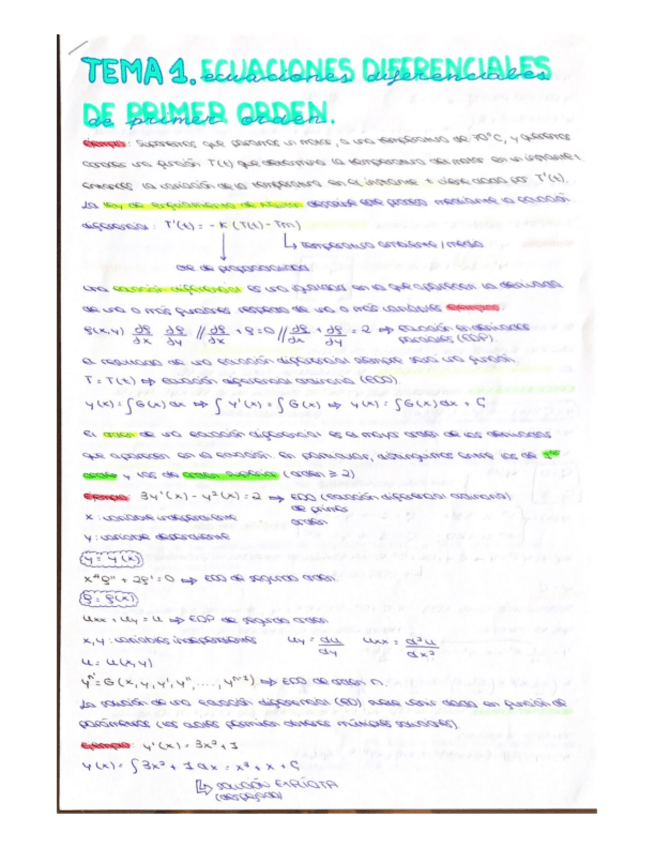 TEMA 1. ECUACIONES DIFERENCIALES
ecuaciones diferenciales
DE PRIMER ORDEN.
de primer orden.
Ejemplo: Suponemos que paramos un motor, a una temperatura de 70°C, y queremos
conocer una función T(t) que determina la temperatura del motor en un instante t,
entonces la variación de la temperatura en el instante t viene dada por T'(t).
La ley de enfriamiento de Newton describe este proceso mediante la ecuación
diferencial: T'(t) = -K (T(t) - Tm)
temperatura ambiente / medio
cte de proporcionalidad
Una ecuación diferencial es una igualdad en la que aparecen la derivada
de una o más funciones respecto de una o más variables Ejemplos:
f(x,y) df/dx df/dy // df/dx + f = 0 // df/dx + df/dy = 2 ⇒ ecuación en derivadas
parciales (EDP).
El resultado de una ecuación diferencial siempre será una función.
T = T(t) ⇒ Ecuación diferencial ordinaria (EDO).
y(x) = ∫G(x) dx ⇒ ∫ y'(x) = ∫ G(x) ⇒ y(x) = ∫G(x) dx + C
El orden de una ecuación diferencial es el mayor orden de las derivadas
que aparecen en la ecuación. En particular, distinguimos entre las de 1er
orden y las de orden superior (orden ≥ 2)
Ejemplo: 3y'(x) - y²(x) = 2 ⇒ EDO (ecuación diferencial ordinaria)
de primer
orden
x: variable independiente
y: variable dependiente
y = y(x)
x" f" + 2f' = 0 ⇒ EDO de segundo orden.
f = f(x)
Uxx + Uy = U ⇒ EDP de segundo orden
x, y: variables independientes Uy = du/dy Uxx = d²u/dx²
U = U(x,y)
yⁿ⁾ = G(x, y, y', y", ..., yⁿ⁻¹⁾) ⇒ EDO de orden n.
La solución de una ecuación diferencial (ED) suele venir dada en función de
parámetros (los cuales permiten obtener múltiples soluciones).
Ejemplo: y'(x) = 3x² + 1
y(x) = ∫ 3x² + 1 dx = x³ + x + C
SOLUCIÓN EXPLÍCITA
(despejada)